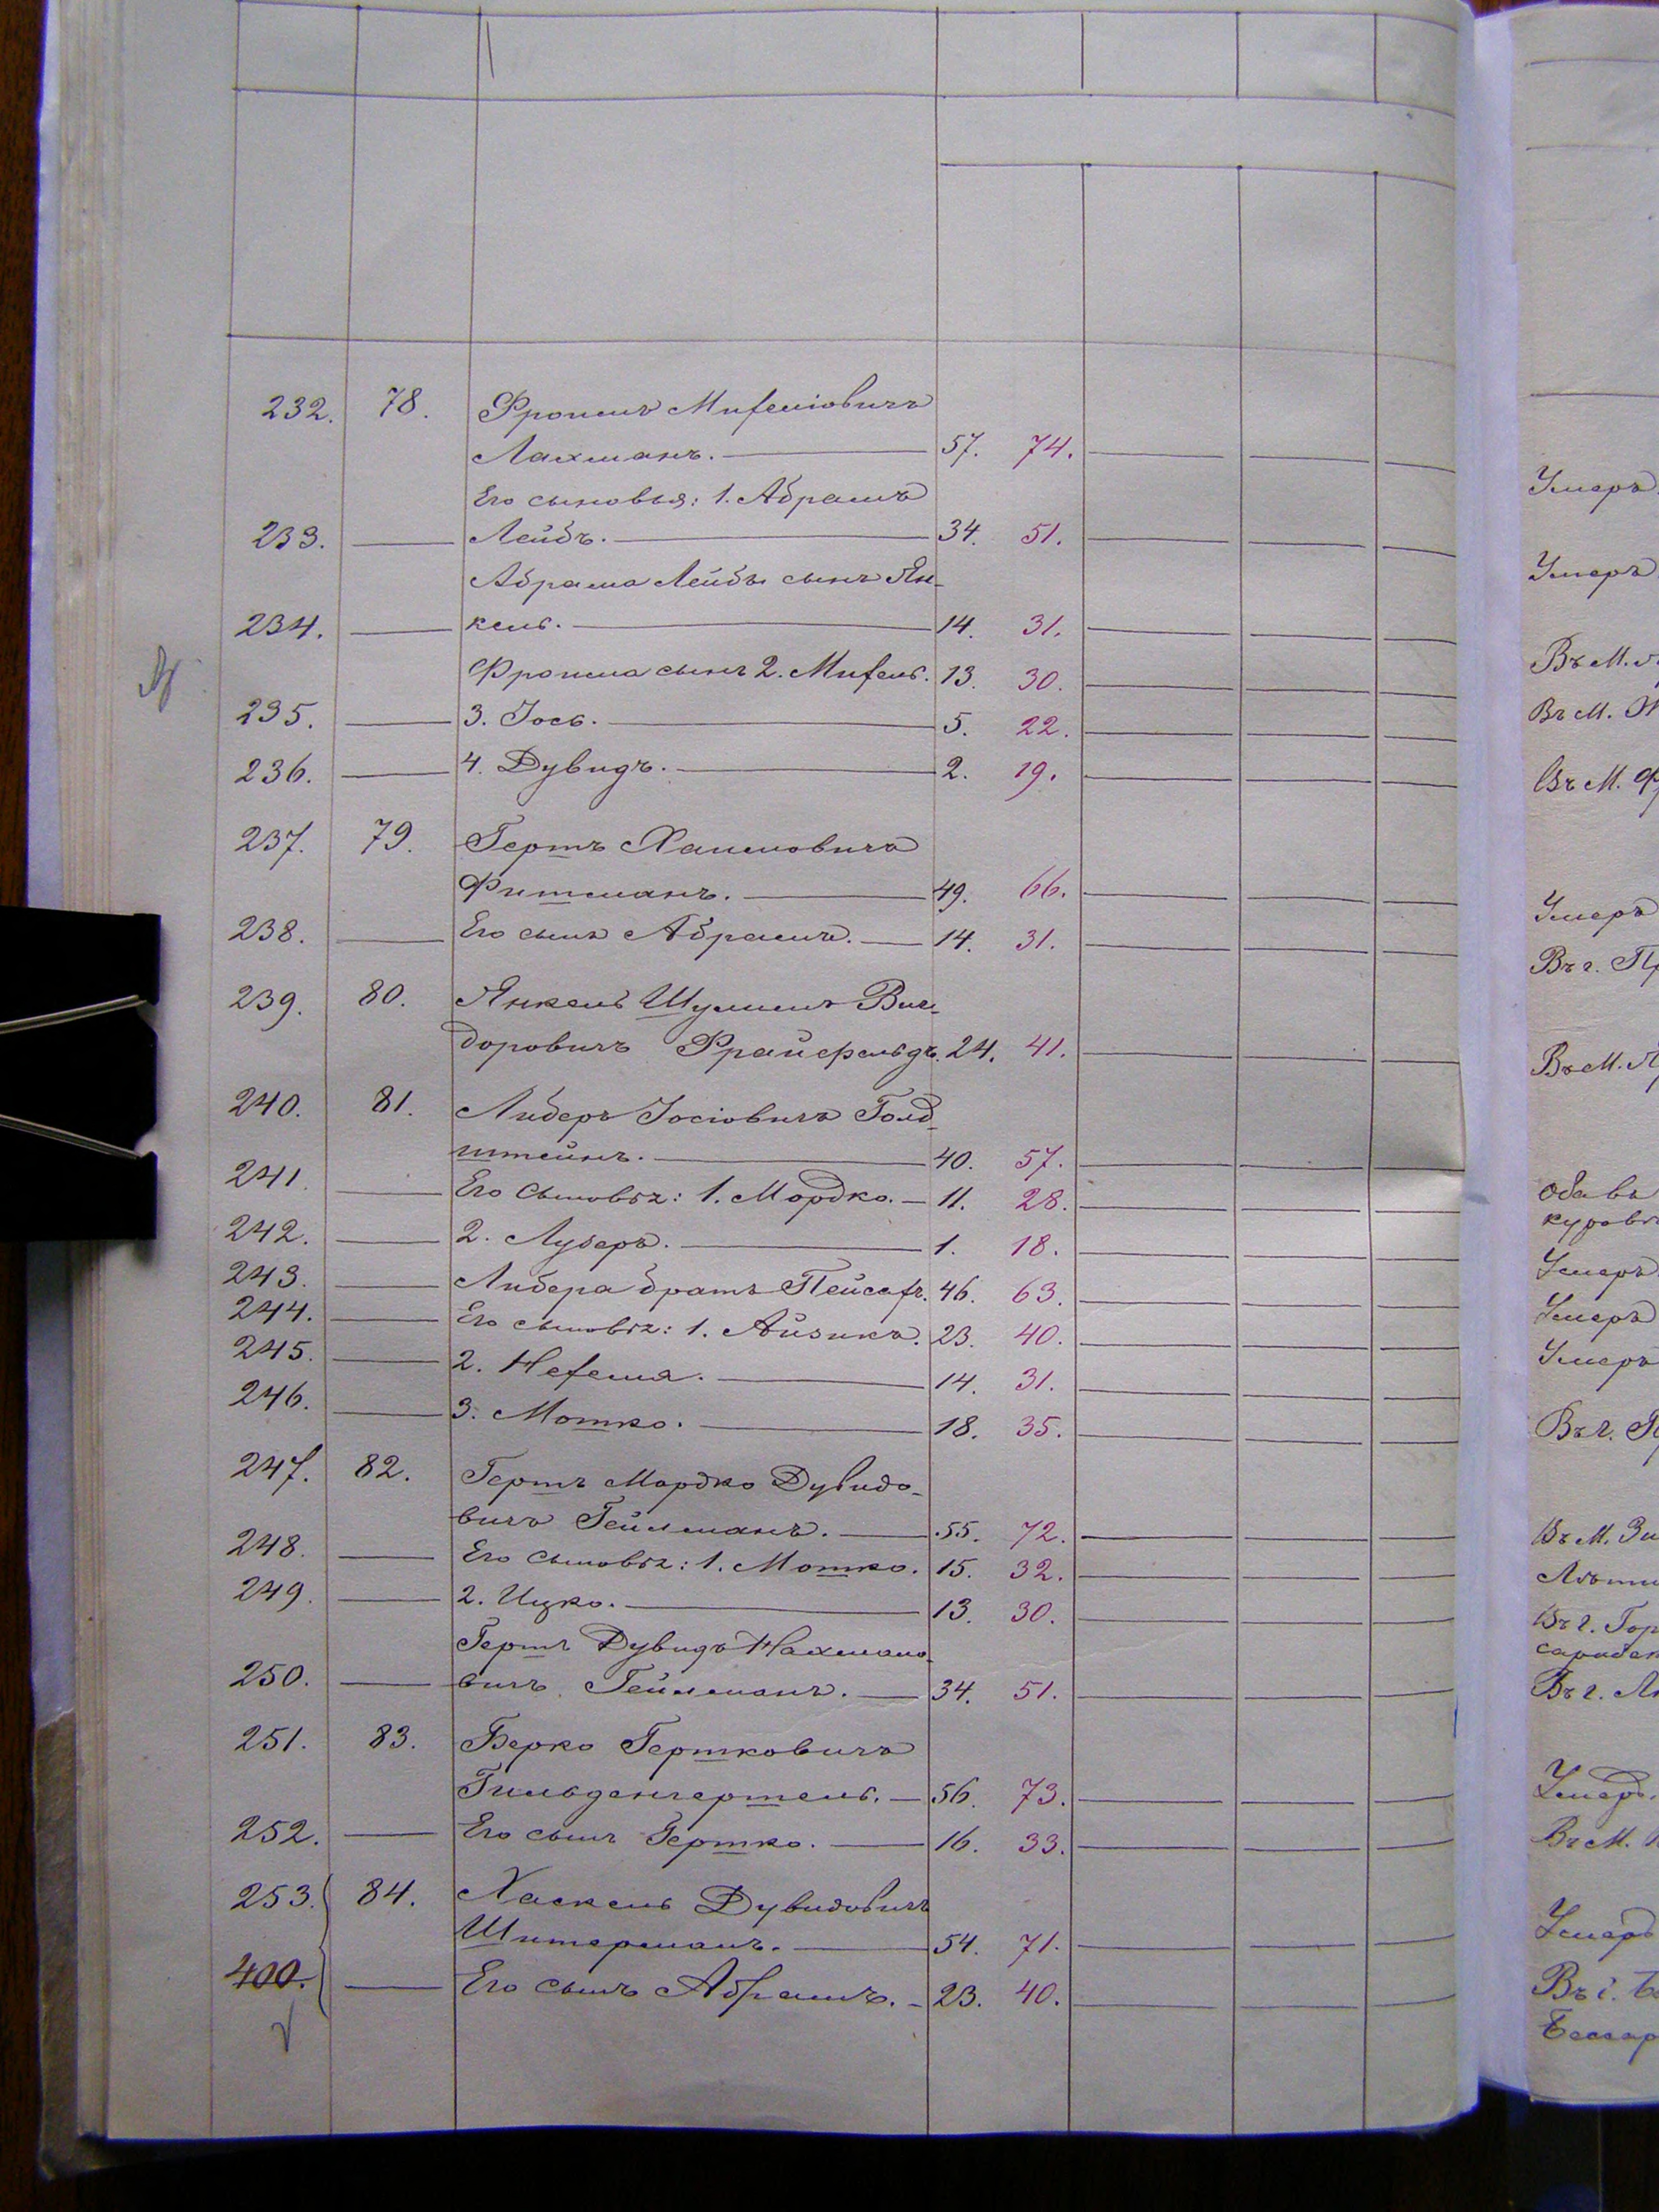 232. 78. Фроимъ Михелiовичъ
Лахманъ. 57. 74.
Его сыновья: 1. Абрамъ
233. Лейбъ. 34. 51.
Абрама Лейбы сынъ Ян-
234. кель. 14. 31.
Фроима сынъ 2. Михель. 13. 30.
235. 3. Iось. 5. 22.
236. 4. Дувидъ. 2. 19.
237. 79. Гершъ Хаимовичъ
Фишманъ. 49. 66.
238. Его сынъ Абрамъ. 14. 31.
239. 80. Янкель Шулимъ Виг-
доровичъ Фрайфельдъ. 24. 41.
240. 81. Либеръ Iосiовичъ Голд-
штейнъ. 40. 57.
241. Его сыновья: 1. Мордко. 11. 28.
242. 2. Луберъ. 1. 18.
243. Либера братъ Пейсахъ. 46. 63.
244. Его сыновья: 1. Айзикъ. 23. 40.
245. 2. Нехемя. 14. 31.
246. 3. Мошко. 18. 35.
247. 82. Гершъ Мордко Дувидо-
вичъ Гейлманъ. 55. 72.
248. Его сыновья: 1. Мошко. 15. 32.
249. 2. Ицко. 13. 30.
Гершъ Дувидъ Нахмано-
250. вичъ Гейлманъ. 34. 51.
251. 83. Берко Гершковичъ
Гильденгершель. 56. 73.
252. Его сынъ Гершко. 16. 33.
253. 84. Хаскель Дувидовичъ
Штерманъ. 54. 71.
400. Его сынъ Абрамъ. 23. 40.
Умеръ
Умеръ
Въ М.
Въ М.
Въ М.
Умеръ
Въ г.
Въ М.
Оба въ
Умеръ
Умеръ
Умеръ
Въ г.
Въ М.
Въ г.
Въ г.
Умеръ.
Въ М.
Умеръ
Въ г.
Бессар